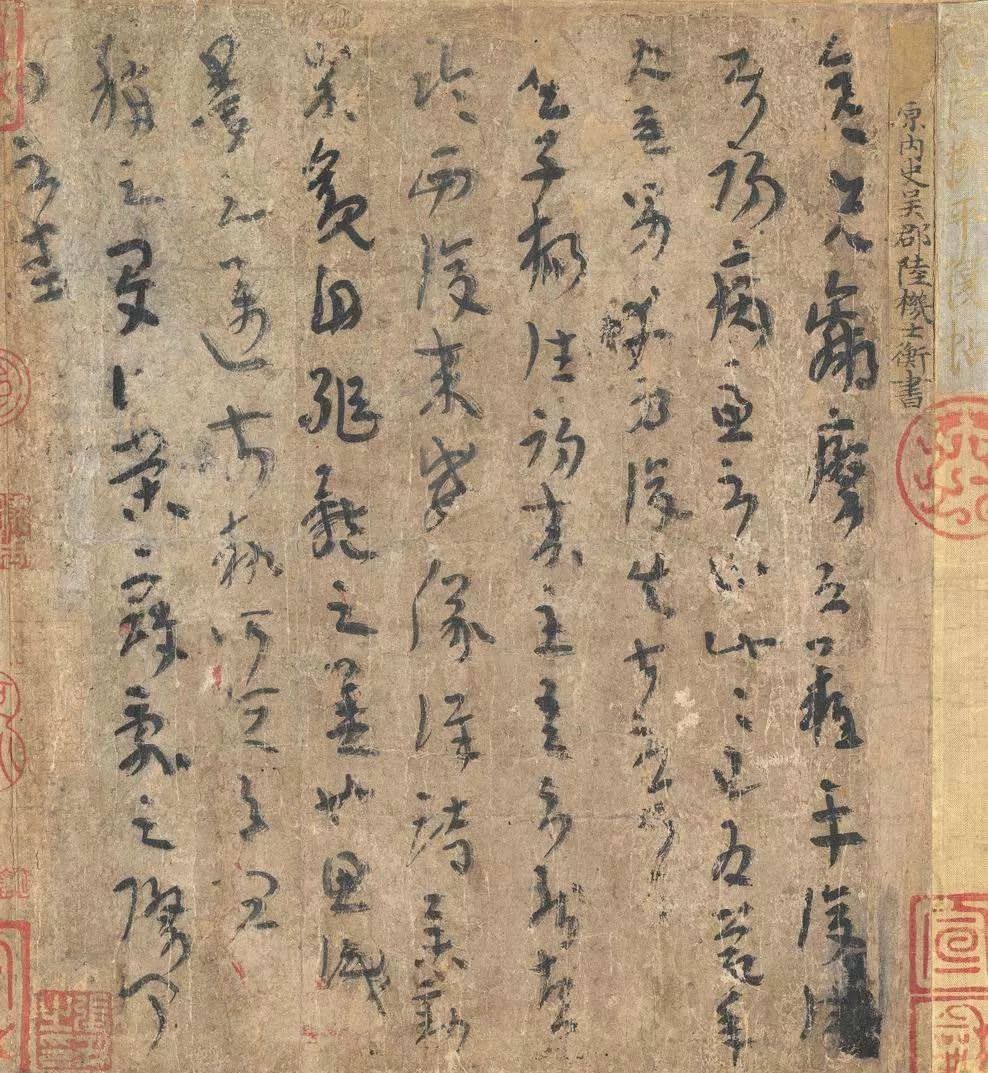 晉陸機平復帖
原内史吴郡陸機士衡書
彦先羸瘵恐難平復往
屬初病慮不止此此已為慶承
使唯男幸為復失前憂耳
吳子楊往初來主吾不能盡
臨西復來威儀詳跱舉動
成觀自軀體之美也思識
量之邁前執所恒有宜
稱之夏伯榮寇亂之際聞
問不悉